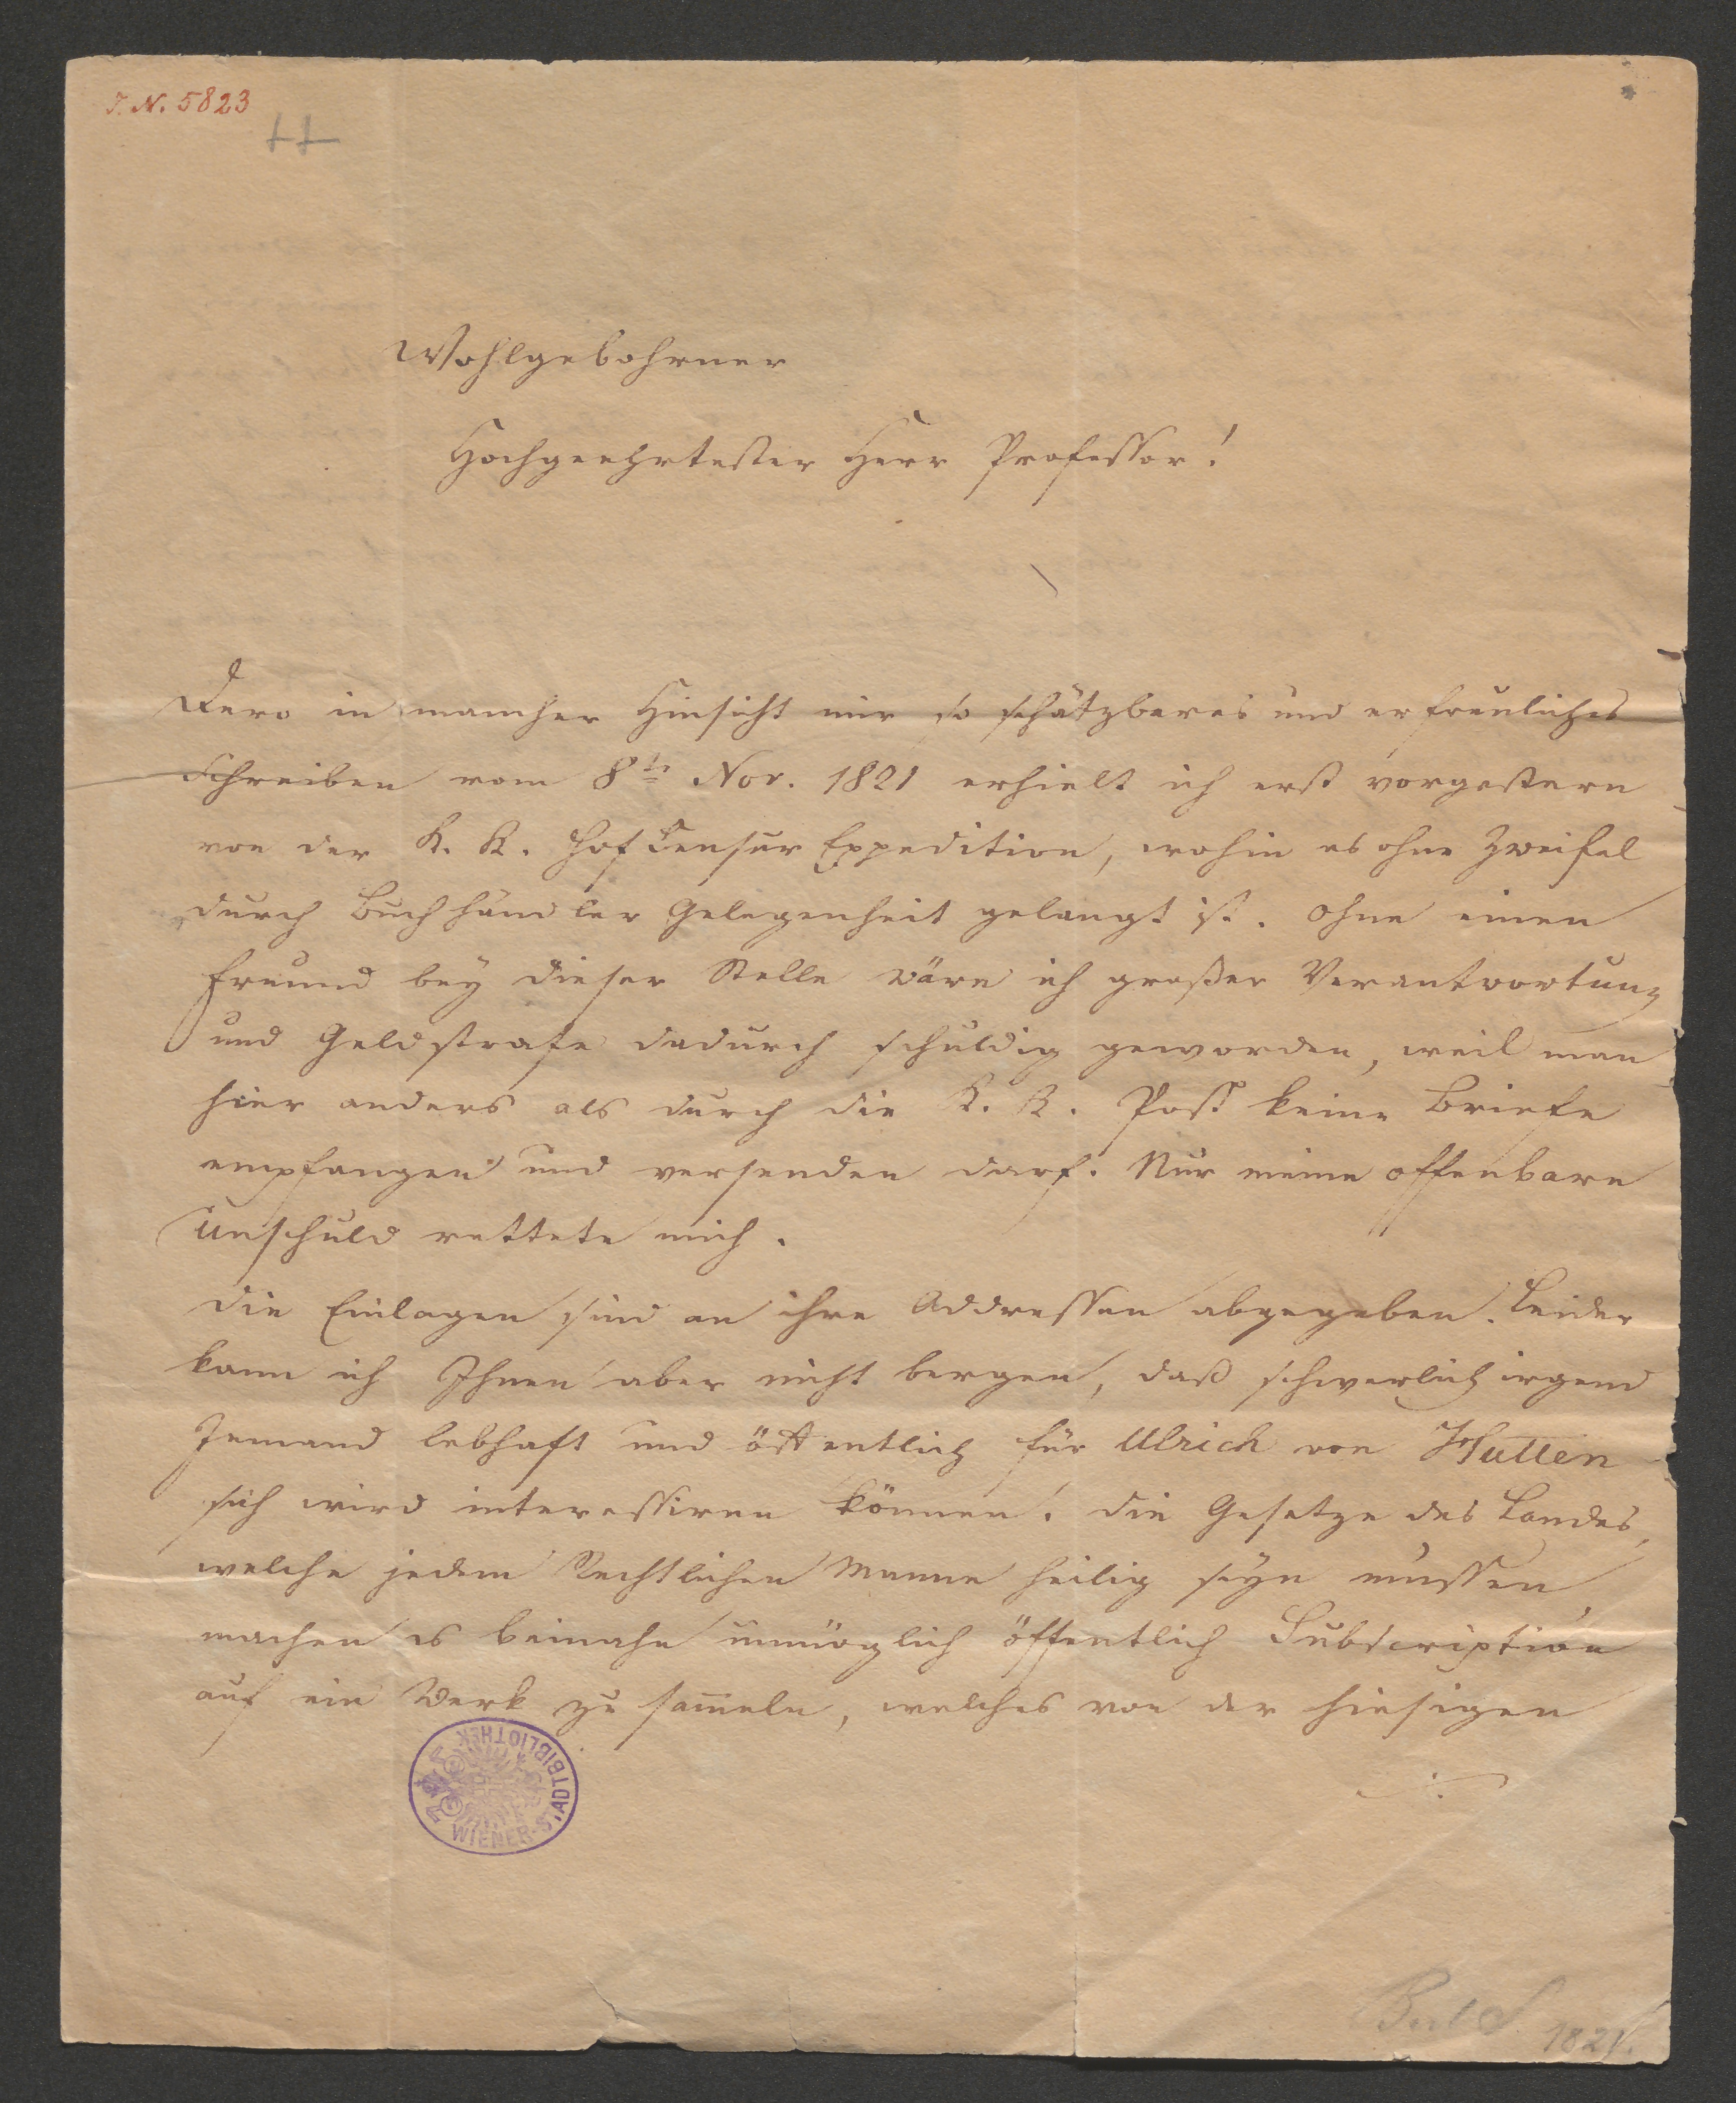 I. N. 5823
Wohlgebohrner
Hochgeehrtester Herr Professor!
Dero in mancher Hinsicht mir so schätzbares und erfreuliches
Schreiben vom 8ten Nov. 1821 erhielt ich erst vorgestern
von der K. K. Hof Censur Expedition, wohin es ohne Zweifel
durch Buchhändler Gelegenheit gelangt ist. Ohne einen
Freund bey dieser Stelle wäre ich großer Verantwortung
und Geldstrafe dadurch schuldig geworden, weil man
hier anders als durch die K. K. Post keine Briefe
empfangen und versenden darf. Nur meine offenbare
Unschuld rettete mich.
Die Einlagen sind an ihre Addressen abgegeben. Leider
kann ich Ihnen aber nicht bergen, daß schwerlich irgend
Jemand lebhaft und öffentlich für Ulrich von Hutten
sich wird interessiren können. Die Gesetze des Landes,
welche jedem Rechtlichen Manne heilig seyn müssen,
machen es beinahe unmöglich öffentlich Subscription
auf ein Werk zu sam̅eln, welches von der hiesigen
WIENER STADTBIBLIOTHEK
1821.